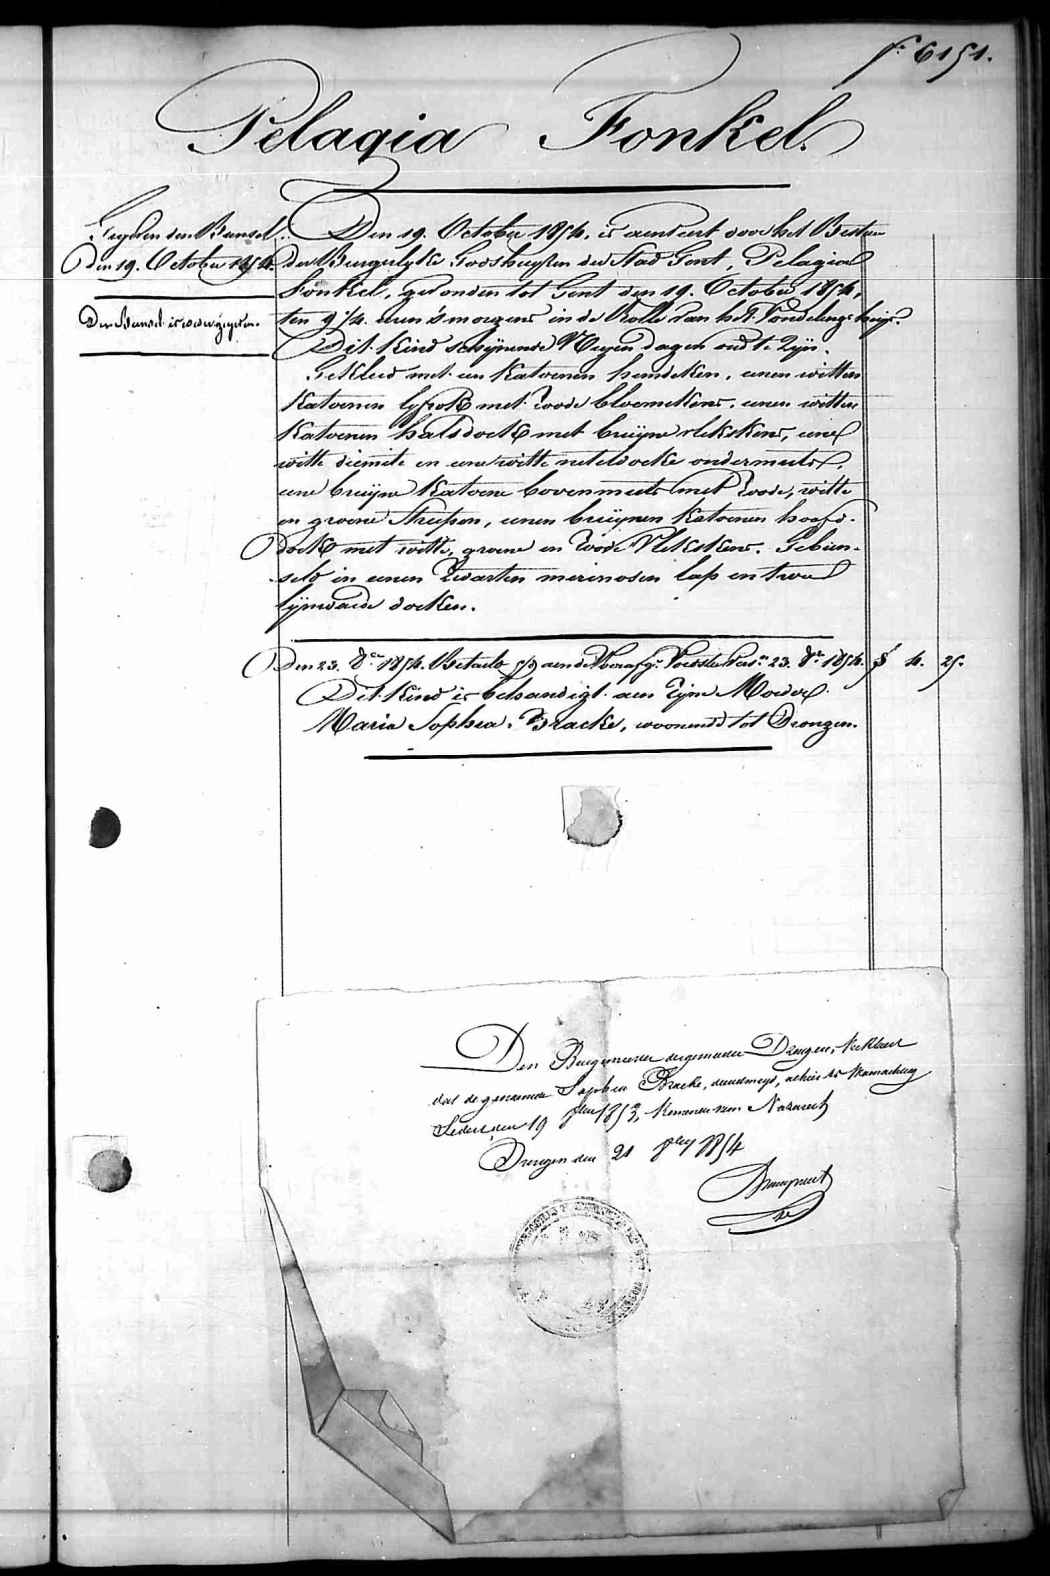 f° 6151.
Pelagia Fonkel.
Gegeven den Bunsel.
Den 19. October 1854.
Den Bunsel is wedergegeven.
Den 19. October 1854. is aenveert door het Bestier
der Burgerlyke Godshuyzen der Stad Gent, Pelagia
Fonkel, gevonden tot Gent den 19. October 1854,
ten 9 1/4 uren 's morgens in de Rolle van het Vondelingshuys.
Dit Kind schynende Negen dagen oud te zyn.
Gekleed met een Katoenen hemdeken, eenen witten
Katoenen lyfrok met roode bloemekens, eenen witten
Katoenen halsdoek met bruyne vlekskens, eene
witte diemite en eene witte neteldoeke ondermuts,
eene bruyne Katoene bovenmuts met roode, witte
en groene streepen, eenen bruynen Katoenen hoofd-
doek met witte, groene en roode vlekskens. Gebun-
seld in eenen zwarten merinosen lap en twee
lynwaede doeken.
Den 23. 8bre 1854. Betaeld aen de Voorafg. Voedster 23. 8bre 1854. f 4. 25.
Dit Kind is behandigt aen zyne Moeder
Maria Sophia Bracke, woonende tot Drongen.
Den Burgemeester der gemeente Drongen, Verklaert
dat de genaemde Sophia Bracke, dienstmeyd, alhier is Woonachtig
Sedert den 19 1853, Komende van Nazareth
Drongen den 21 8ber 1854